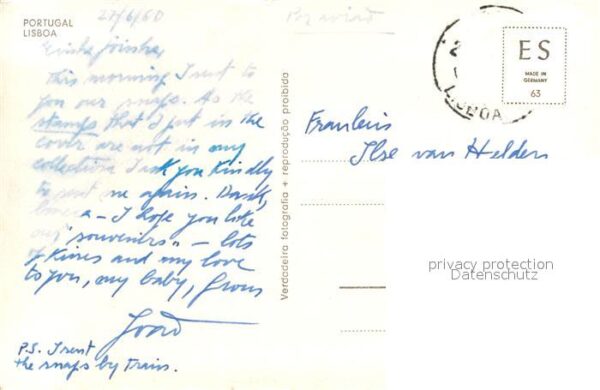 PORTUGAL
LISBOA
27/6/60
Par avião
This morning I sent to
you our snaps. As the
stamps that I put in the
cover are not in my
collection I ask you kindly
to sent me again. Dank,
- I hope you like
our "souvenirs" - lots
of kisses and my love
to you, my baby, from
João
P.S. I sent
the snaps by train.
Verdadeira fotografia + reprodução proibida
LISBOA
ES
MADE IN
GERMANY
63
Fraulein
Ilse van Helden
privacy protection
Datenschutz